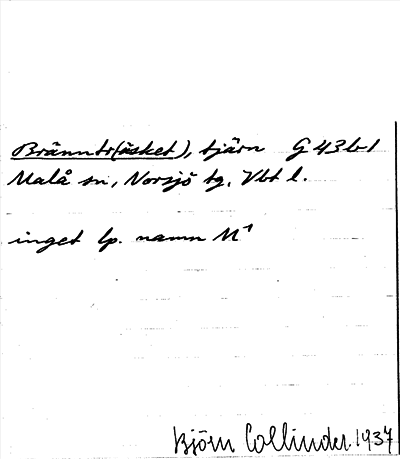 Bränntr(äsket), tjärn G43b1
Malå sn, Norsjö tg, Vbt l.
inget lp. namn M¹
Björn Collinder 1937